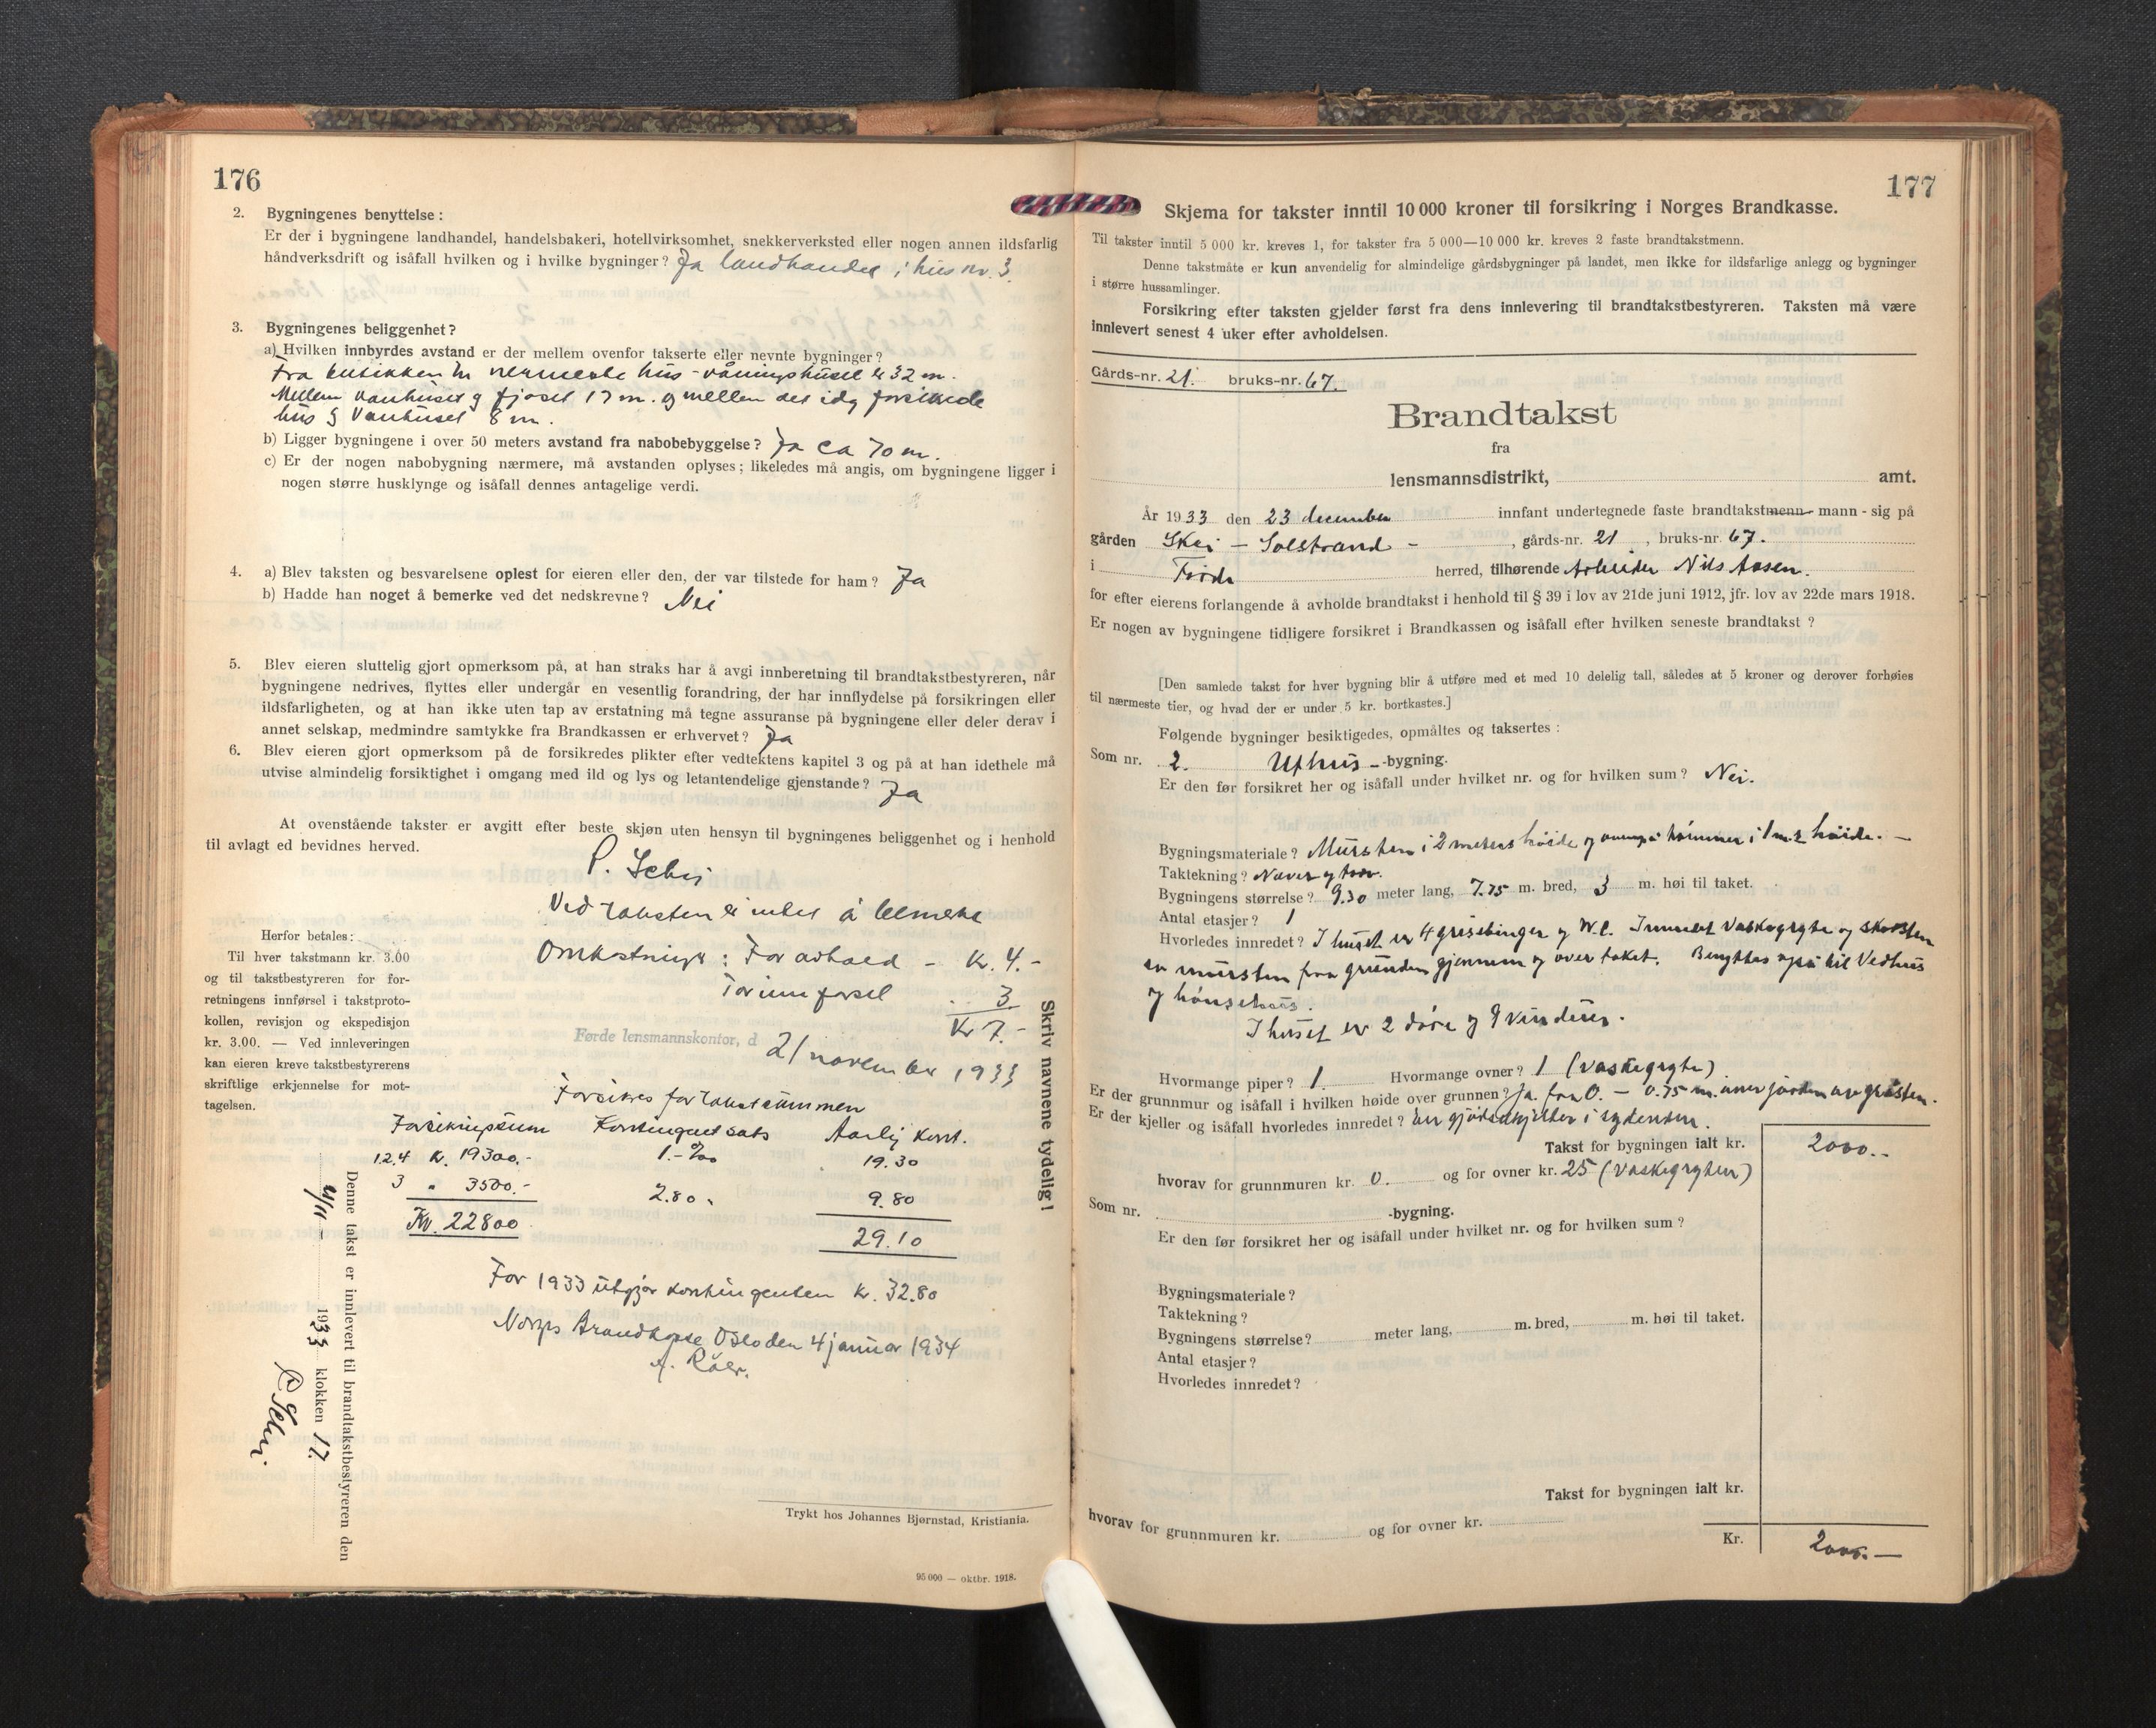 176
2. Bygningenes benyttelse :
Er der i bygningene landhandel, handelsbakeri, hotellvirksomhet, snekkerverksted eller nogen annen ildsfarlig
håndverksdrift og isåfall hvilken og i hvilke bygninger? Ja landhandel i hus nr. 3
3. Bygningenes beliggenhet ?
a) Hvilken innbyrdes avstand er der mellem ovenfor takserte eller nevnte bygninger ?
Fra butikken til nermeste hus - våningshuset er 32 m.
Mellem vånhuset og fjøset 17 m. og mellem det idag forsikrede
hus og Vånhuset 8 m.
b) Ligger bygningene i over 50 meters avstand fra nabobebyggelse ? Ja ca 70 m.
c) Er der nogen nabobygning nærmere, må avstanden oplyses ; likeledes må angis, om bygningene ligger i
nogen større husklynge og isåfall dennes antagelige verdi.
4. a) Blev taksten og besvarelsene oplest for eieren eller den, der var tilstede for ham ? Ja
b) Hadde han noget å bemerke ved det nedskrevne ? Nei
5. Blev eieren sluttelig gjort opmerksom på, at han straks har å avgi innberetning til brandtakstbestyreren, når
bygningene nedrives, flyttes eller undergår en vesentlig forandring, der har innflydelse på forsikringen eller
ildsfarligheten, og at han ikke uten tap av erstatning må tegne assuranse på bygningene eller deler derav i
annet selskap, medmindre samtykke fra Brandkassen er erhvervet ? Ja
6. Blev eieren gjort opmerksom på de forsikredes plikter efter vedtektens kapitel 3 og på at han idethele må
utvise almindelig forsiktighet i omgang med ild og lys og letantendelige gjenstande ? Ja
At ovenstående takster er avgitt efter beste skjøn uten hensyn til bygningenes beliggenhet og i henhold
til avlagt ed bevidnes herved.
Ved taksten er intet å bemerke
Omkostninger : For avhold - Kr. 4.-
For innførsel 3
Kr 7.-
Førde lensmannskontor, d 21 november 1933
Herfor betales :
Til hver takstmann kr. 3.00
og til takstbestyreren for for-
retningens innførsel i takstproto-
kollen, revisjon og ekspedisjon
kr. 3.00. — Ved innleveringen
kan eieren kreve takstbestyrerens
skriftlige erkjennelse for mot-
tagelsen.
Forsikres for takstsummen
Forsikringssum Kontingentsats Aarlig kont.
1.2.4 Kr. 19300.- 1.- ‰ 19.30
3 " 3500.- 2.80 " 9.80
Kr. 22800 29.10
For 1933 utgjør kontingenten Kr. 32.80
Norges Brandkasse Oslo den 4 januar 1934
Skriv navnene tydelig !
Denne takst er innlevert til brandtakstbestyreren den
21/11 — 1933 klokken 17.
Trykt hos Johannes Bjørnstad, Kristiania.
95 000 — oktbr. 1918.
177
Skjema for takster inntil 10 000 kroner til forsikring i Norges Brandkasse.
Til takster inntil 5 000 kr. kreves 1, for takster fra 5 000—10 000 kr. kreves 2 faste brandtakstmenn.
Denne takstmåte er kun anvendelig for almindelige gårdsbygninger på landet, men ikke for ildsfarlige anlegg og bygninger
i større hussamlinger.
Forsikring efter taksten gjelder først fra dens innlevering til brandtakstbestyreren. Taksten må være
innlevert senest 4 uker efter avholdelsen.
Gårds-nr. 21. bruks-nr. 67.
Brandtakst
fra
lensmannsdistrikt, amt.
År 1933 den 23 december innfant undertegnede faste brandtakstmenn - mann - sig på
gården Skei - Solstrand - , gårds-nr. 21 , bruks-nr. 67.
i Førde herred, tilhørende Arbeider Nils Aasen.
for efter eierens forlangende å avholde brandtakst i henhold til § 39 i lov av 21de juni 1912, jfr. lov av 22de mars 1918.
Er nogen av bygningene tidligere forsikret i Brandkassen og isåfall efter hvilken seneste brandtakst ?
[Den samlede takst for hver bygning blir å utføre med et med 10 delelig tall, således at 5 kroner og derover forhøies
til nærmeste tier, og hvad der er under 5 kr. bortkastes.]
Følgende bygninger besiktigedes, opmåltes og taksertes :
Som nr. 2. Uthus -bygning.
Er den før forsikret her og isåfall under hvilket nr. og for hvilken sum ? Nei.
Bygningsmateriale ? Mursten i 2 meters høide og ovenpå tømmer i 1 m høide. —
Taktekning ? Never og torv.
Bygningens størrelse ? 9.30 meter lang, 7.75 m. bred, 3 m. høi til taket.
Antal etasjer ? 1
Hvorledes innredet ? I huset er 4 grisebinger og W.C. Innmuret Vaskegryte og skorsten
av mursten fra grunden gjennem og over taket. Benyttes også til Vedhus
og hønsehus.
I huset er 2 døre og 9 vinduer.
Hvormange piper ? 1. Hvormange ovner ? 1 (vaskegryte)
Er der grunnmur og isåfall i hvilken høide over grunnen ? Ja. fra 0. - 0.75 m. over jorden av gråsten.
Er der kjeller og isåfall hvorledes innredet ? En gjødselkjelder i sydenden.
Takst for bygningen ialt kr. 2000.-
hvorav for grunnmuren kr. 0. og for ovner kr. 25 (vaskegryten)
Som nr. -bygning.
Er den før forsikret her og isåfall under hvilket nr. og for hvilken sum ?
Bygningsmateriale ?
Taktekning ?
Bygningens størrelse ? meter lang, m. bred, m. høi til taket.
Antal etasjer ?
Hvorledes innredet ?
Takst for bygningen ialt kr.
hvorav for grunnmuren kr. og for ovner kr.
Kr. 2000.—